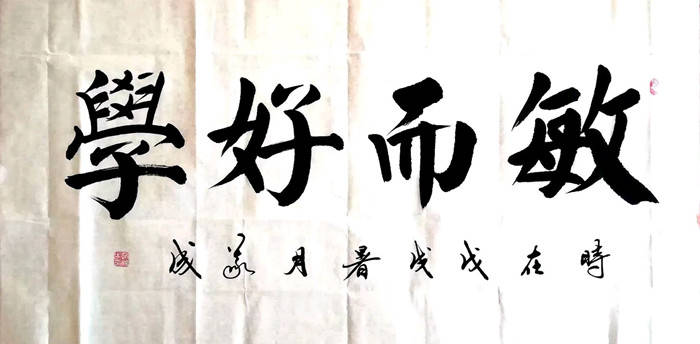 敏而好學
時在戊戌暑月義成